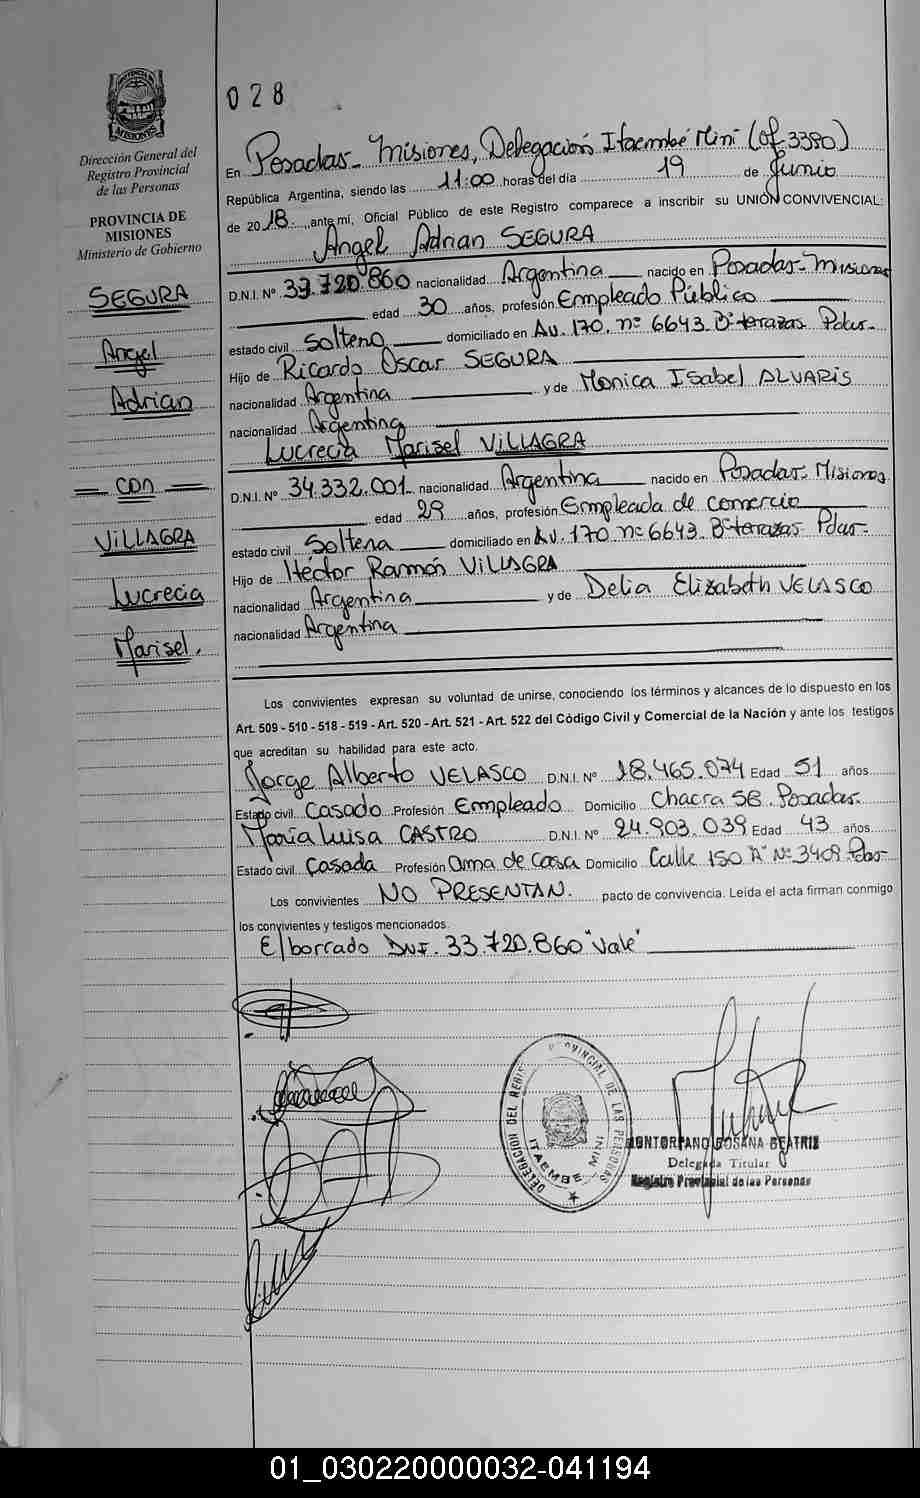 028
PROVINCIA DE
MISIONES
Dirección General del
Registro Provincial
de las Personas
PROVINCIA DE
MISIONES
Ministerio de Gobierno
SEGURA
Angel
Adrian
CON
VILLAGRA
Lucrecia
Marisel.
En Posadas - Misiones, Delegación Itaembé Miní (of. 3380)
República Argentina, siendo las 11:00 horas del día 19 de Junio
de 2018 ,ante mí, Oficial Público de este Registro comparece a inscribir su UNIÓN CONVIVENCIAL:
Angel Adrian SEGURA
D.N.I. Nº 33.720.860 nacionalidad Argentina nacido en Posadas - Misiones
edad 30 años, profesión Empleado Público
estado civil Soltero domiciliado en Av. 170. nº 6643. Bº terrazas Pdas-
Hijo de Ricardo Oscar SEGURA
nacionalidad Argentina y de Monica Isabel ALVARIS
nacionalidad Argentina
Lucrecia Marisel VILLAGRA
D.N.I. Nº 34.332.001 nacionalidad Argentina nacido en Posadas - Misiones
edad 29 años, profesión Empleada de comercio
estado civil Soltera domiciliado en Av. 170 nº 6643. Bº terrazas Pdas-
Hijo de Héctor Ramón VILLAGRA
nacionalidad Argentina y de Delia Elizabeth VELASCO
nacionalidad Argentina
Los convivientes expresan su voluntad de unirse, conociendo los términos y alcances de lo dispuesto en los
Art. 509 - 510 - 518 - 519 - Art. 520 - Art. 521 - Art. 522 del Código Civil y Comercial de la Nación y ante los testigos
que acreditan su habilidad para este acto.
Jorge Alberto VELASCO D.N.I. Nº 18.465.074 Edad 51 años
Estado civil Casado Profesión Empleado Domicilio Chacra 58. Posadas.
María Luisa CASTRO D.N.I. Nº 24.903.039 Edad 43 años
Estado civil Casada Profesión Ama de Casa Domicilio Calle 150 "A" Nº 3409 Pdas-
Los convivientes NO PRESENTAN. pacto de convivencia. Leída el acta firman conmigo
los convivientes y testigos mencionados.
El borrado DNI. 33.720.860 "Vale"
DELEGACION DEL REGISTRO PROVINCIAL DE LAS PERSONAS
ITAEMBE MINI
MONTORFANO ROSANA BEATRIZ
Delegada Titular
Registro Provincial de las Personas
01_030220000032-041194